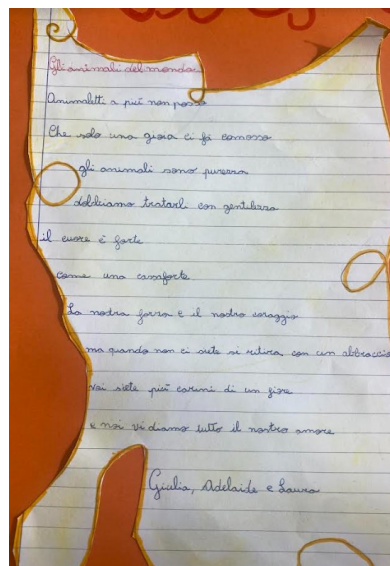 Gli animali del mondo
Animaletti a più non posso
Che solo una gioia ci fá comosso
gli animali sono purezza
dobbiamo tratarli con gentilezza
il cuore è forte
come una cassforte
La nostra forza è il nostro coraggio
ma quando non ci siete si ritira con un abbraccio
Voi siete più carini di un fiore
e noi vi diamo tutto il nostro amore
Giulia, Adelaide e Laura